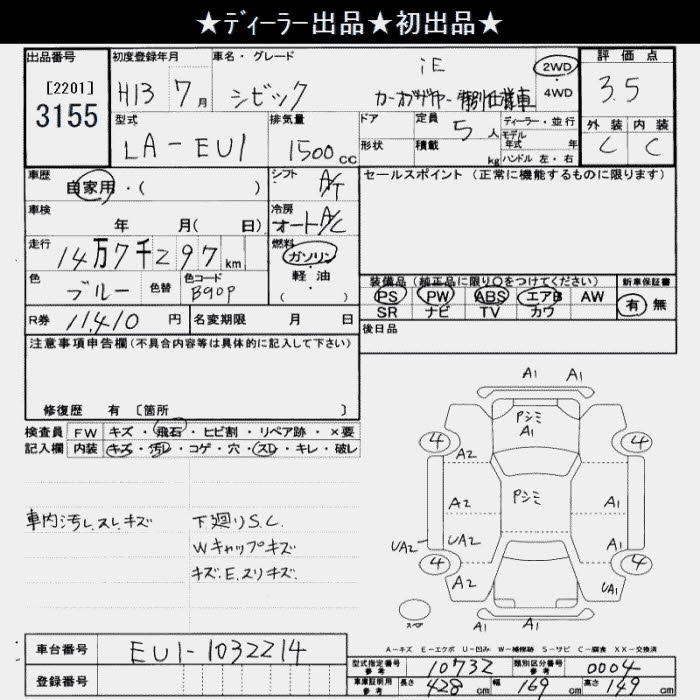 ★ディーラー出品★初出品★
出品番号
[2201]
3155
初度登録年月
H13 7月
車名・グレード
シビック
iE
2WD
・
4WD
評価点
3.5
外装 内装
C C
型式
LA-EU1
排気量
1500cc
ドア
形状
定員 5人
積載 kg
ディーラー・並行
モデル
年式 年
ハンドル 左・右
車歴
自家用・( )
シフト
A/T
車検
年 月( 日)
冷房
オートA/C
走行
14万7千297km
燃料
ガソリン
・
軽油
( )
色
ブルー
色替
色コード
B90P
R券 11,410円
名変期限 月 日
セールスポイント (正常に機能するものに限ります)
装備品(純正品に限り○をつけてください)
PS PW ABS エアB AW
SR ナビ TV カワ
新車保証書
有 無
後日品
注意事項申告欄(不具合内容等は具体的に記入して下さい)
修復歴 有 〔箇所 〕
検査員
記入欄
FW キズ・飛石・ヒビ割・リペア跡・×要
内装 キズ・汚レ・コゲ・穴・スレ・キレ・破レ
車内汚レ.スレ.キズ
下廻りS.C.
Wキャップキズ
キズ.E.スリキズ.
A1 A1
Pシミ
A1
4 4
A2 A1
Pシミ
A2 A1
UA2 A1
4 4
A2 UA1
A1 A1
スペア
A-キズ E-エクボ U-凹み W-補修跡 S-サビ C-腐食 XX-交換済
車台番号
EU1-1032214
登録番号
型式指定番号
参考
10732
類別区分番号
参考
0004
車庫証明用
参考
長さ 428cm 幅 169cm 高さ 149cm